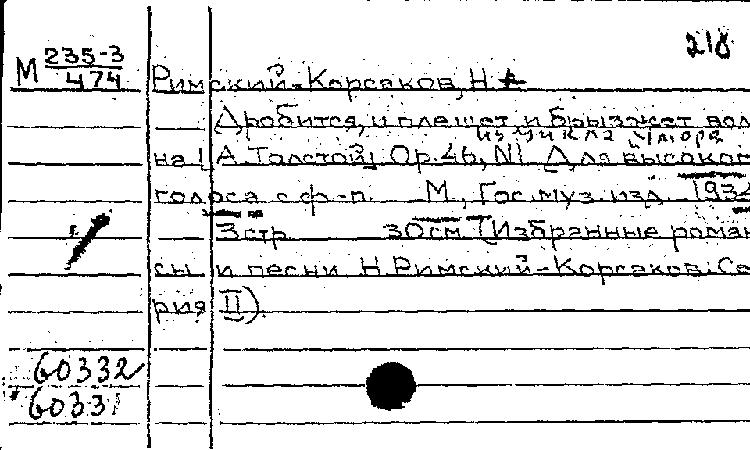 218
М 235-3
474
Римский-Корсаков, Н
Дробится, и плещет, и брызжет вол
из цикла У моря
на [А. Толстой] Op. 46, N1 Для высоког
голоса с ф-п. М., Гос. муз. изд. 1932
3 стр. 30 см (Избранные роман
сы и песни Н. Римский-Корсаков: Се
рия II).
60332
60331